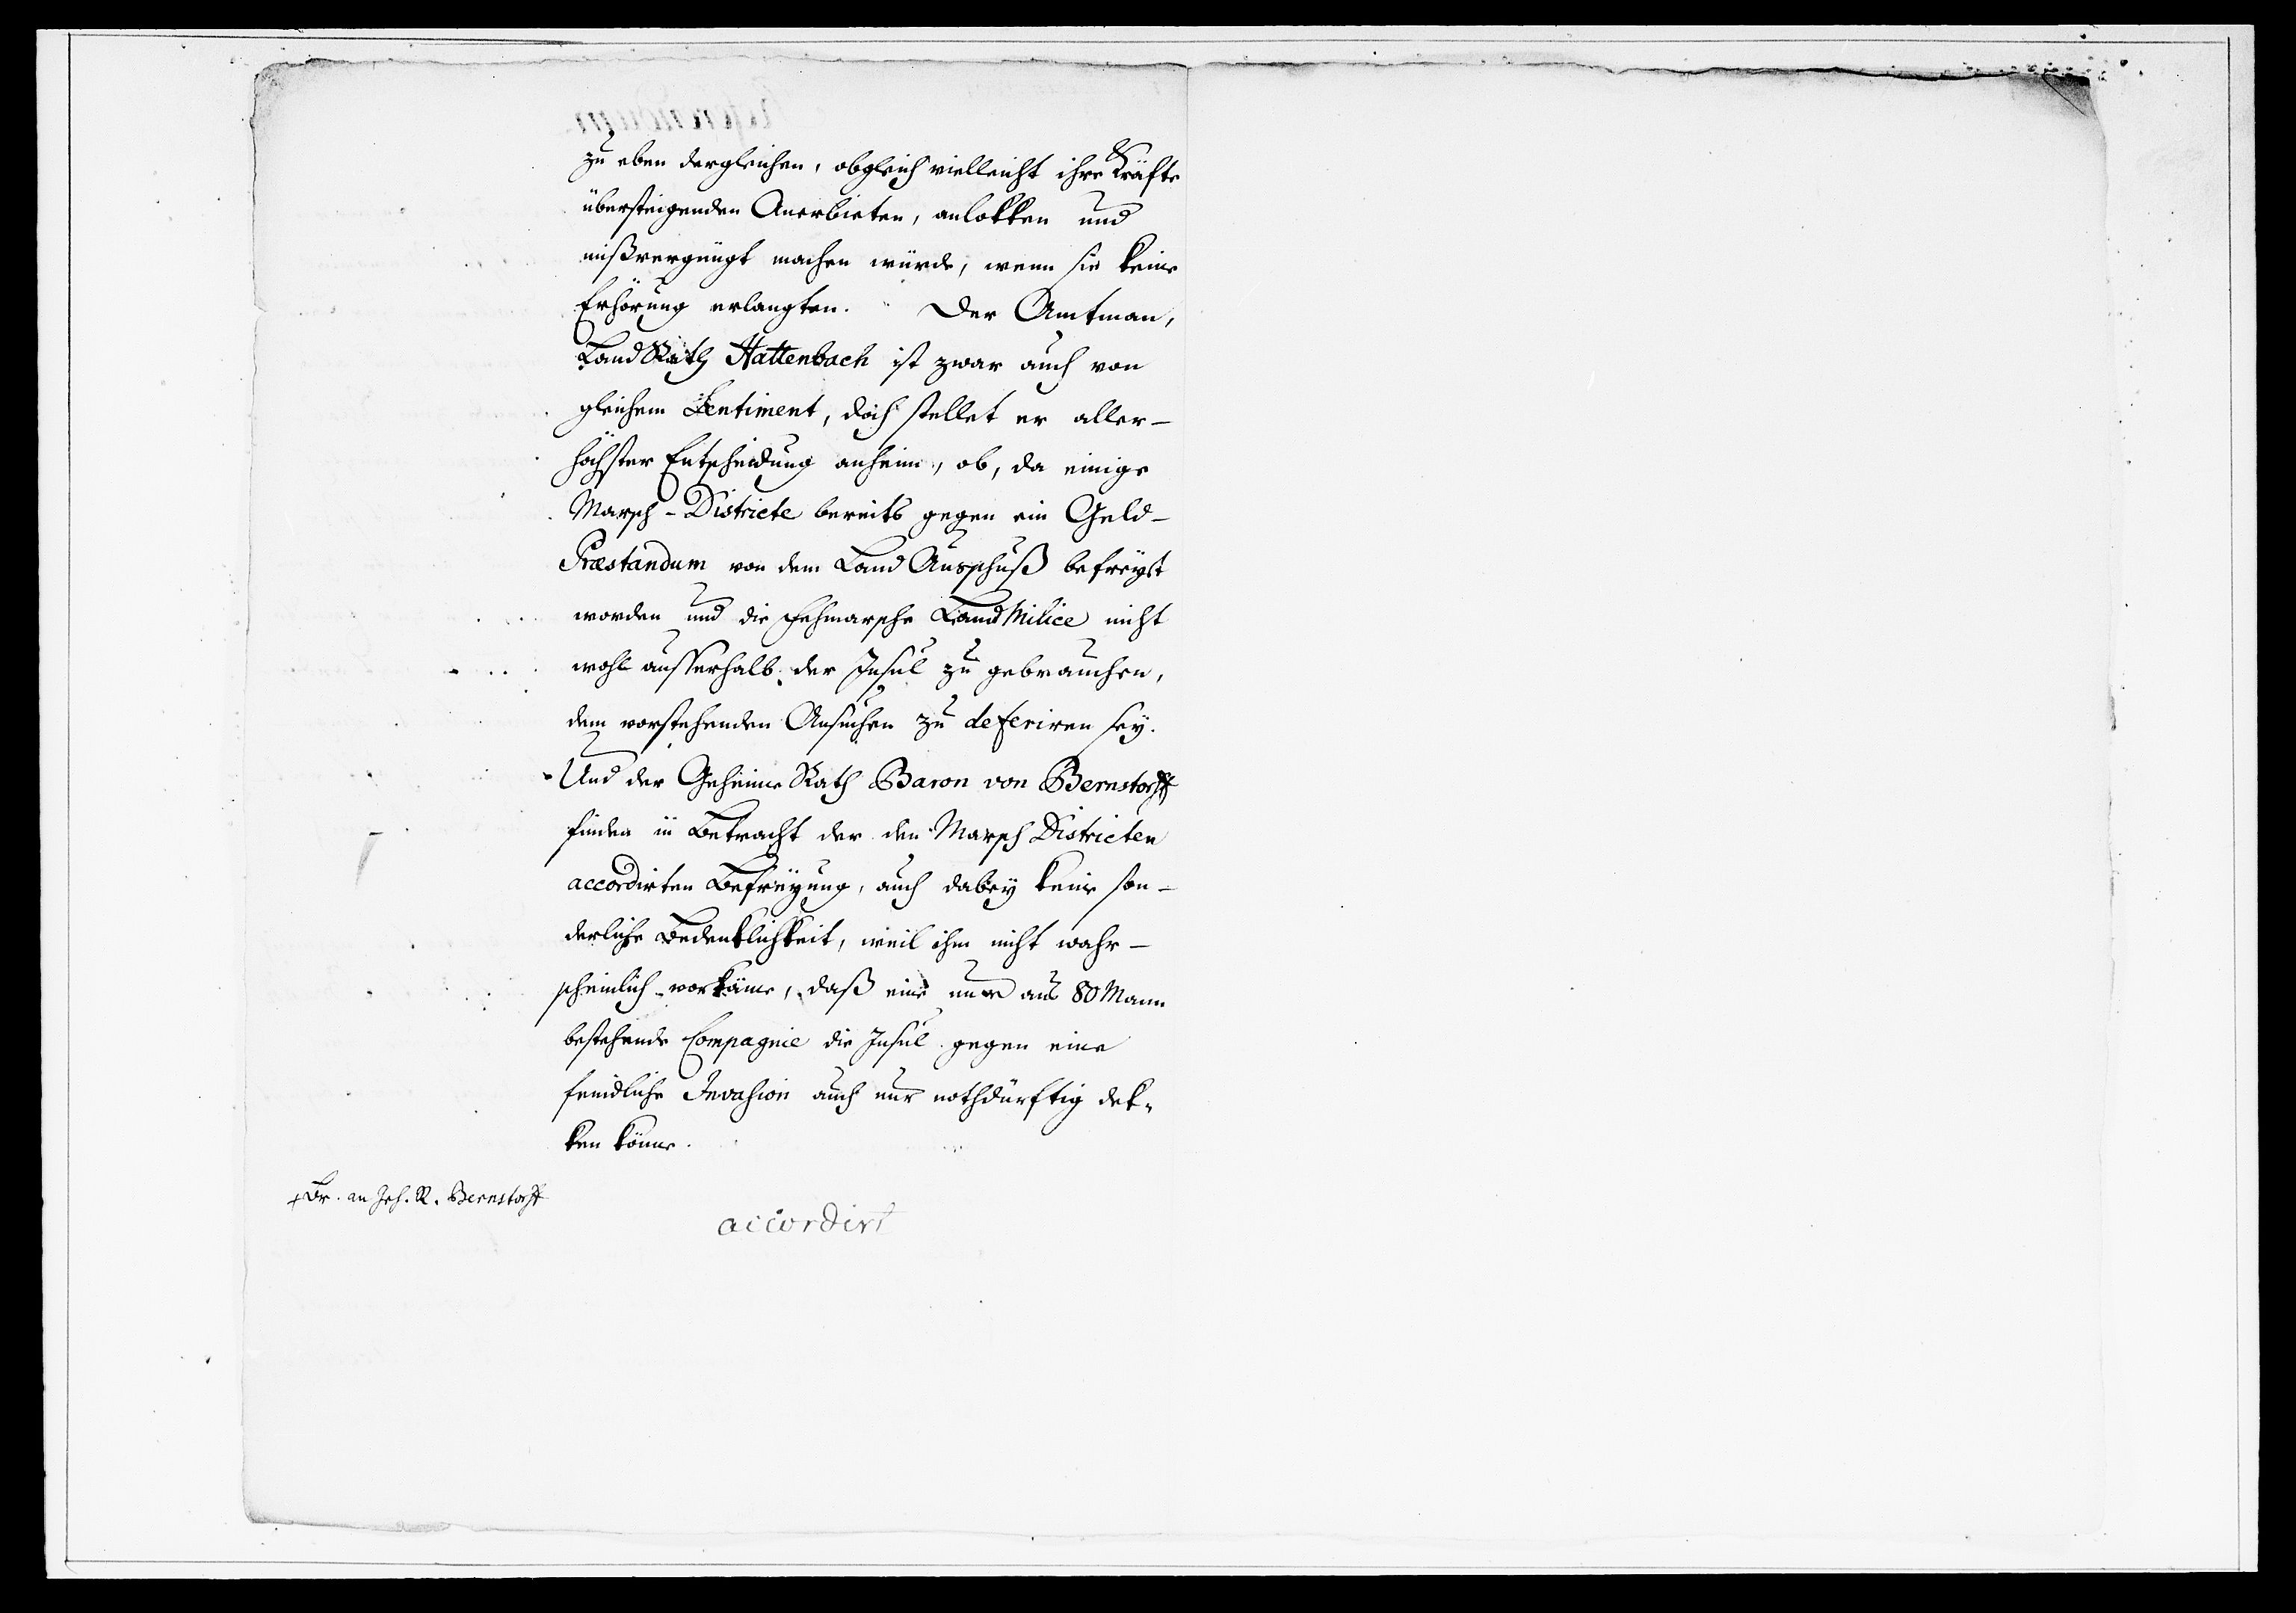 zu eben dergleichen, obgleich vielleicht ihre Kräfte
übersteigenden Anerbieten, anlokken und
mißvergnügt machen würde, wenn sie keine
Erhörung erlangten. Der Amtman,
LandRath Hattenbach ist zwar auch von
gleichem Sentiment, doch stellet er aller-
höchster Entscheidung anheim, ob, da einige
Marsch-Districte bereits gegen ein Geld-
Præstandum von dem Land Ausschuß befreyet
worden und die Fehmarsche Land Milice nicht
wohl ausserhalb der Insul zu gebrauchen,
dem vorstehenden Ansuchen zu deferiren sey.
Und der Geheime Rath Baron von Bernstorff
finden in Betracht der den Marsch Districten
accordirten Befreyung, auch dabey keine son-
derliche Bedenklichkeit, weil ihm nicht wahr-
scheinlich vorkäme, daß eine nur aus 80 Mann
bestehende Compagnie die Insul gegen eine
feindliche Invasion auch nur nothdürftig dek-
ken könne.
Br. an Geh. R. Bernstorff
accordirt